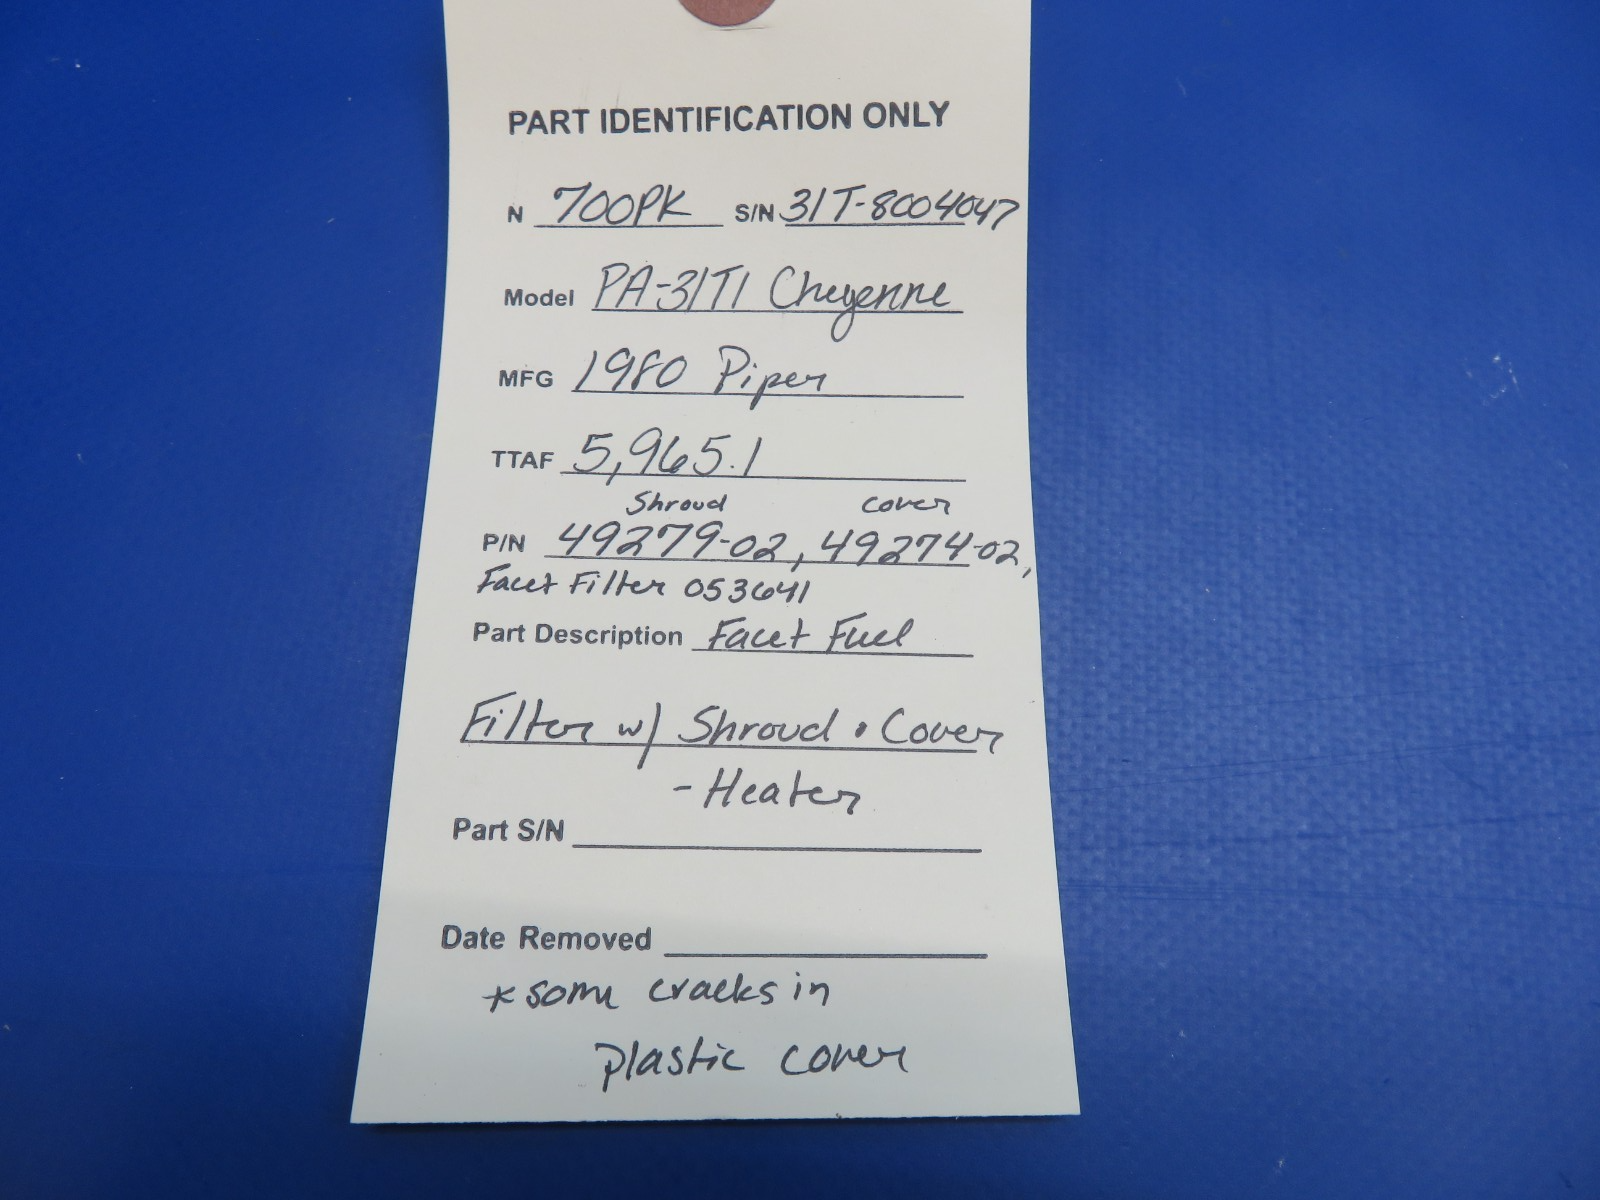 PART IDENTIFICATION ONLY
N 700PK S/N 31T-8004047
Model PA-31T1 Cheyenne
MFG 1980 Piper
TTAF 5,965.1
Shroud cover
P/N 49279-02, 49274-02,
Facet Filter 053641
Part Description Facet Fuel
Filter w/ Shroud • Cover
- Heater
Part S/N
Date Removed
* some cracks in
plastic cover